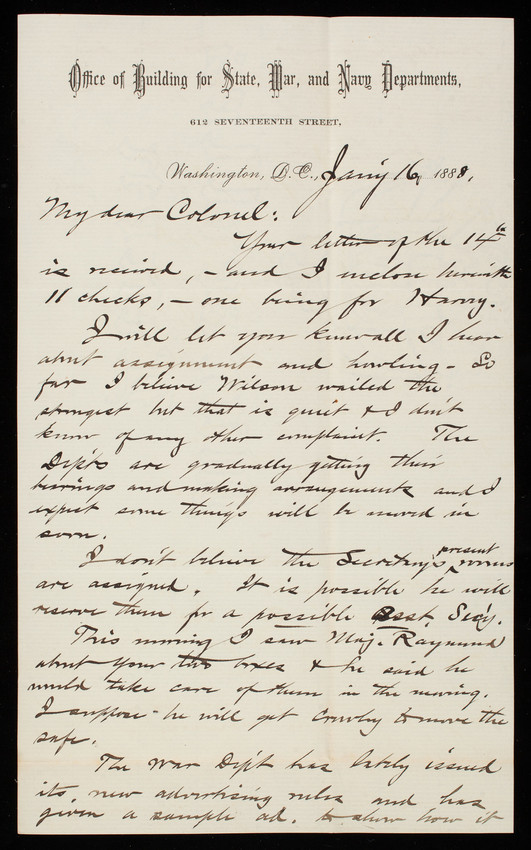 Office of Building for State, War, and Navy Departments,
612 SEVENTEENTH STREET,
Washington, D.C., Jan'y 16, 1888,
My dear Colonel:
Your letter of the 14th
is received, - and I inclose herewith
11 checks, - one being for Harry.
I will let you know all I hear
about assignment and howling - So
far I believe Wilson wailed the
strongest but that is quiet & I don't
know of any other complaint. The
Dep'ts are gradually getting their
bearings and making arrangements and I
expect some things will be moved in
soon.
I don't believe the Secretary's present rooms
are assigned. It is possible he will
reserve them for a possible Asst. Sec'y.
This morning I saw Maj. Raymond
about your two boxes & he said he
would take care of them in the moving.
I suppose he will get Crowley to move the
safe.
The War Dep't has lately issued
its new advertising rules and has
given a sample ad. to show how it